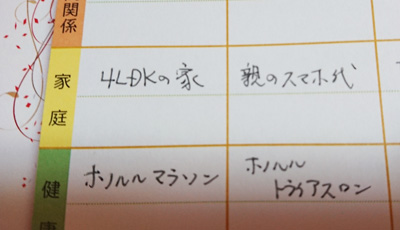 関係
家庭
4LDKの家
親のスマホ代
健康
ホノルルマラソン
ホノルル
トライアスロン